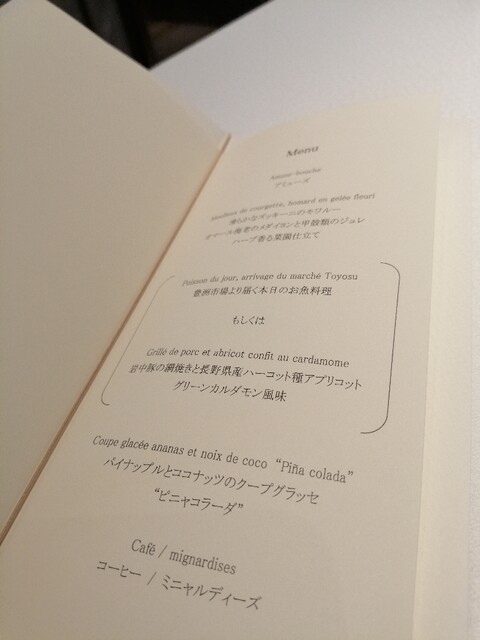 Menu
Amuse-bouche
アミューズ
Moelleux de courgette, homard en gelée fleuri
滑らかなズッキーニのモワルー
オマール海老のメダイヨンと甲殻類のジュレ
ハーブ香る菜園仕立て
Poisson du jour, arrivage du marché Toyosu
豊洲市場より届く本日のお魚料理
もしくは
Grillé de porc et abricot confit au cardamome
岩中豚の網焼きと長野県産ハーコット種アプリコット
グリーンカルダモン風味
Coupe glacée ananas et noix de coco “Piña colada”
パイナップルとココナッツのクープグラッセ
“ピニャコラーダ”
Café / mignardises
コーヒー / ミニャルディーズ